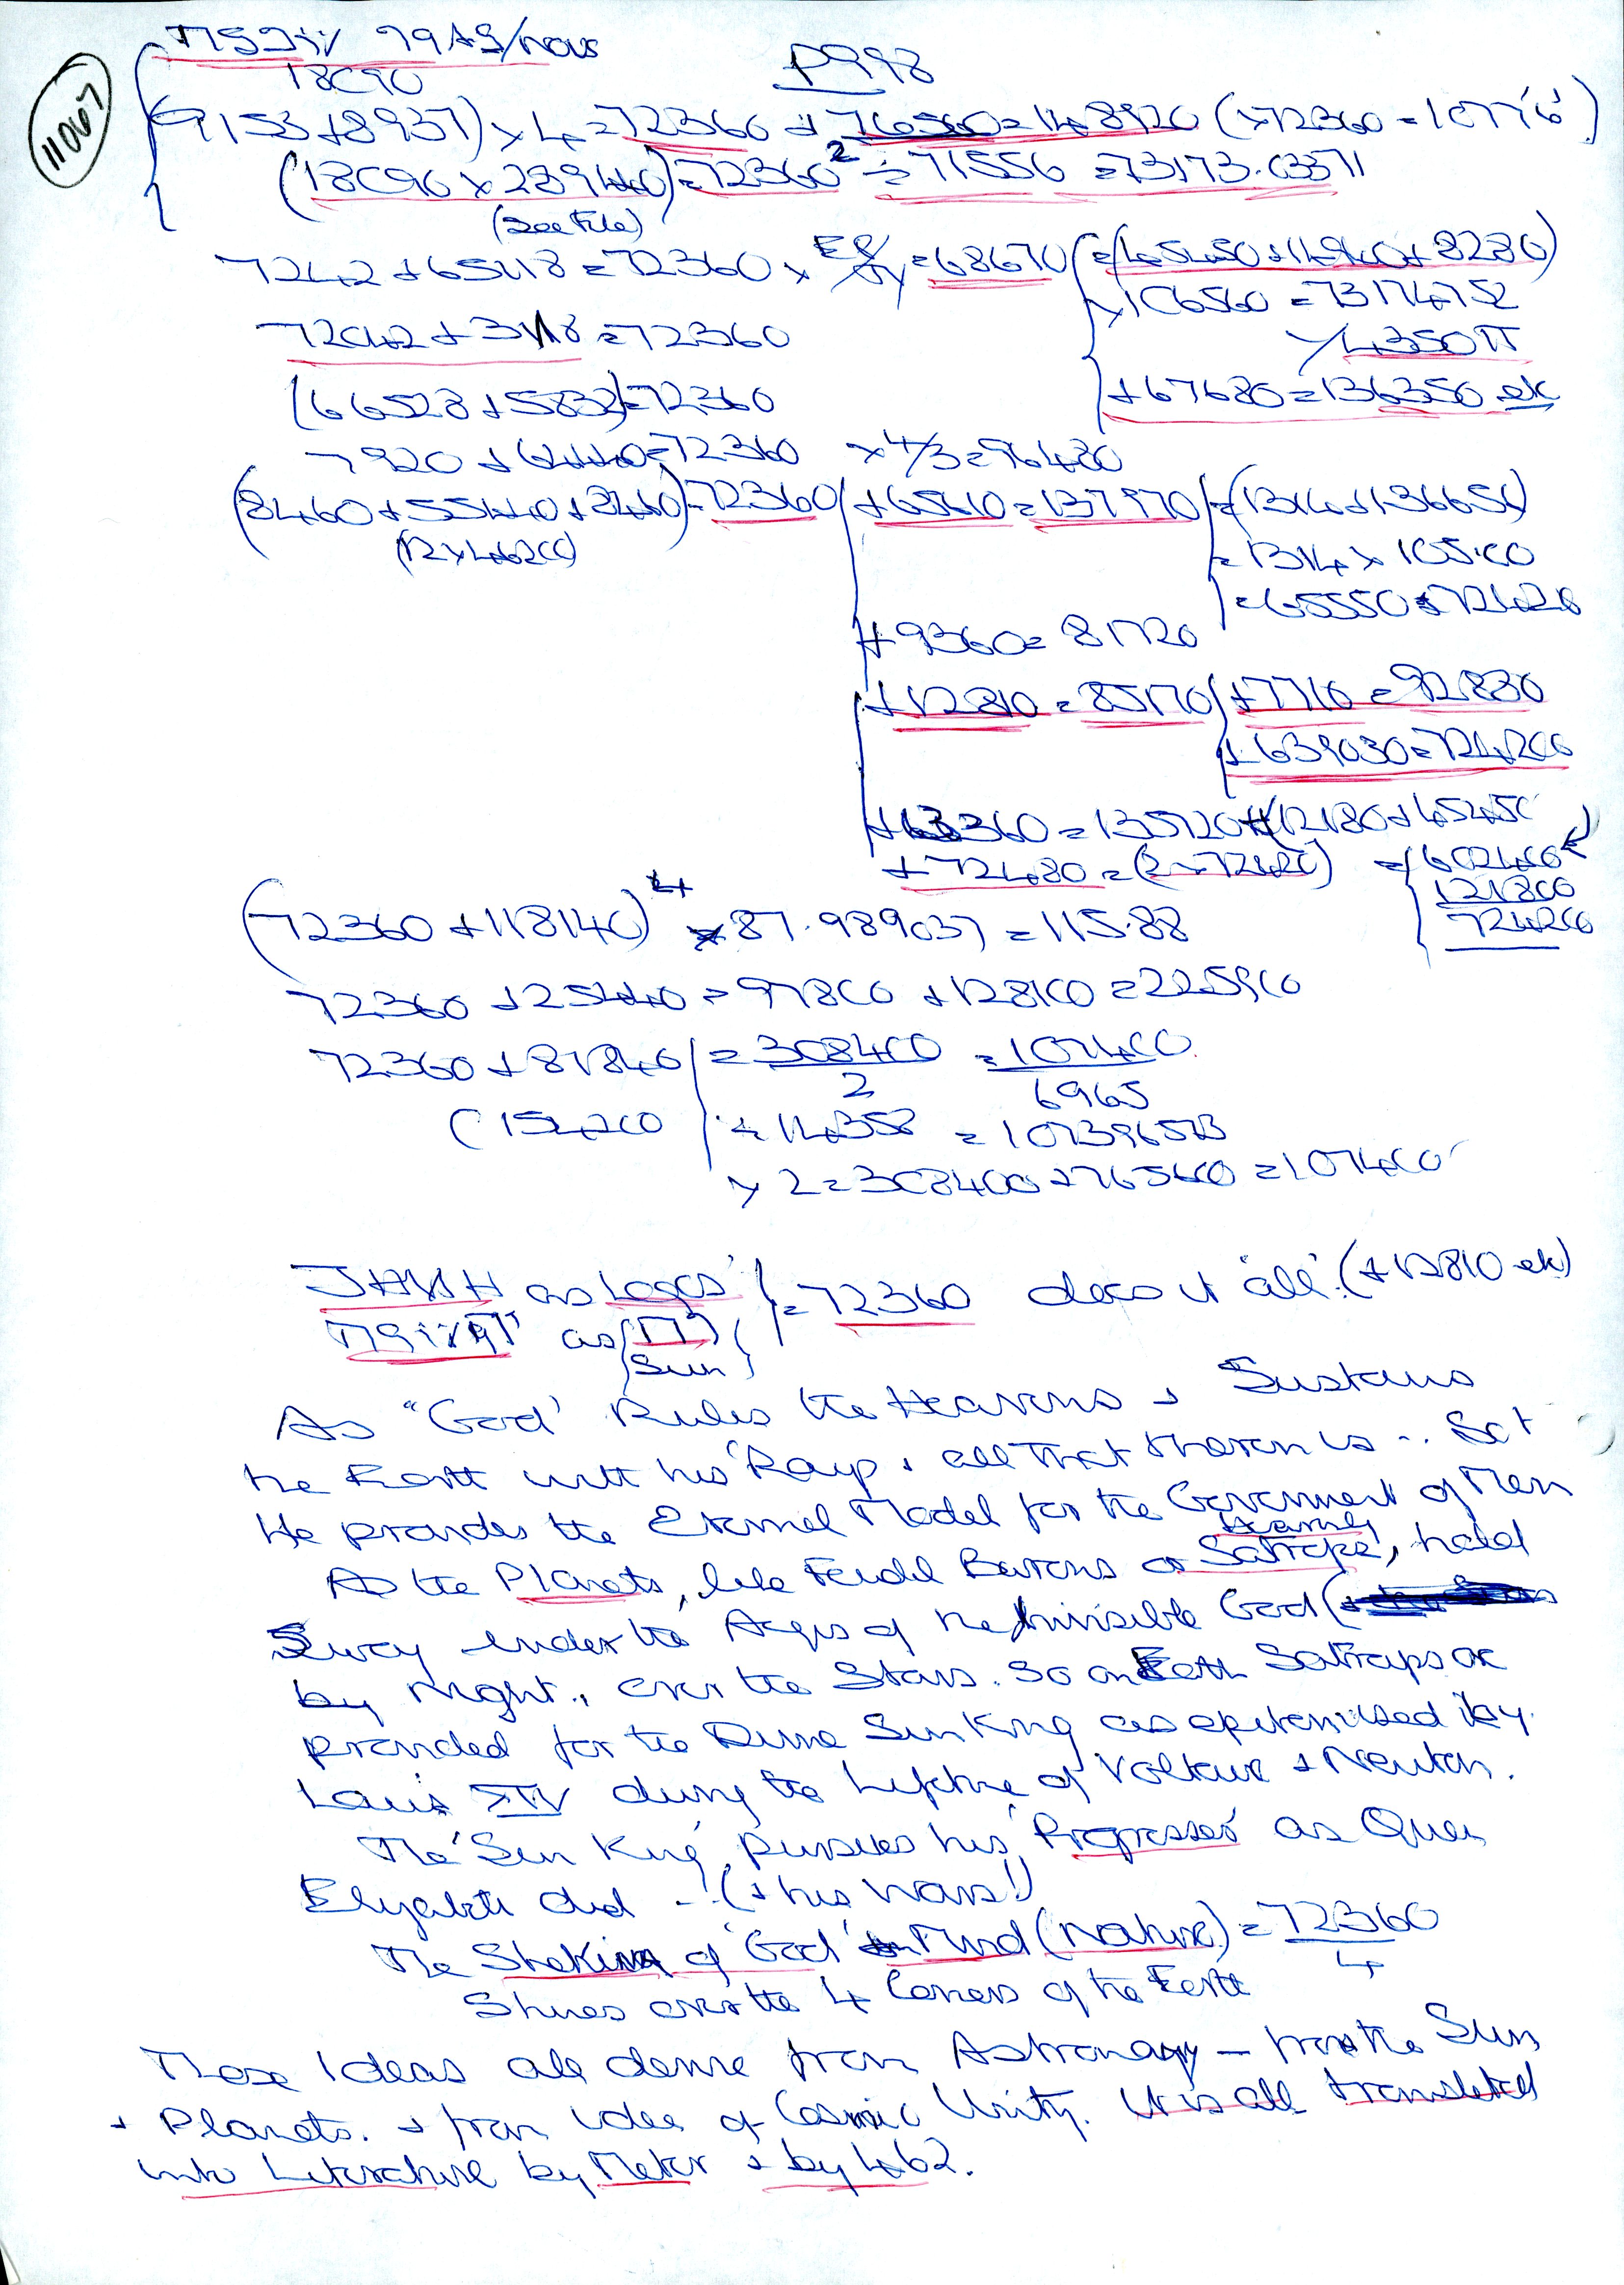 11067
P998
18090
(9153+8937) x 4 = 72360 + 76560 = 148920 (x 72360 = 10776')
(18090 x 289440) = 72360² ÷ 71556 = 73173.03371
(see File)
7242 + 65118 = 72360 x = 68670 (= (45450+14940+8280)
x 106560 = 73174752
72042 + 318 = 72360
/4350π
(66528 + 5832) = 72360
+ 67680 = 136350 ek
7920 + 64440 = 72360 x 4/3 = 96480
(8460 + 55440 + 8460) = 72360 + 65610 = 137970 = (1314 + 136656)
(12 x 4620)
= 1314 x 105.00
= 65550 + 72420
+ 9360 = 81720
+ 12810 = 85170 + 7710 = 92880
+ 639030 = 724200
+ 63360 = 135720 + (12180 + 45450
+ 72480 = (2 x 72420) = 602400
121800
724200
(72360 + 118140)⁴ x 87.989037 = 115.88
72360 + 25440 = 97800 + 128100 = 225900
72360 + 81840 = 308400 = 107400
2 6965
(154200 ÷ 14358 = 107396573
x 2 = 308400 + 765600 = 107400'
JHVH as Logos = 72360 does it 'all'. (+ 12810 ek)
as
Sun
As "God' Rules the Heavens + Sustains
the Earth with his 'Rays, + all that therein is .. So +
He provides the Eternal Model for the Government of Men
Heavenly
As the Planets, like Feudal Barons or Satraps', hold
Sway under the Aegis of the Invisible God (
by Night, over the Stars. So on Earth Satraps are
provided for the Divine Sun King as epitomised by
Louis XIV during the Lifetime of Voltaire + Newton.
The 'Sun King' pursues his 'Progresses' as Queen
Elizabeth did -- (+ his Wars!)
The Shekina of 'God' Mind (Nature) = 72360
4
Shines over the 4 Corners of the Earth
These Ideas all derive from Astronomy – from the Sun
+ Planets. + from idea of Cosmic Unity. It is all translated
into Literature by Meter + by 462.